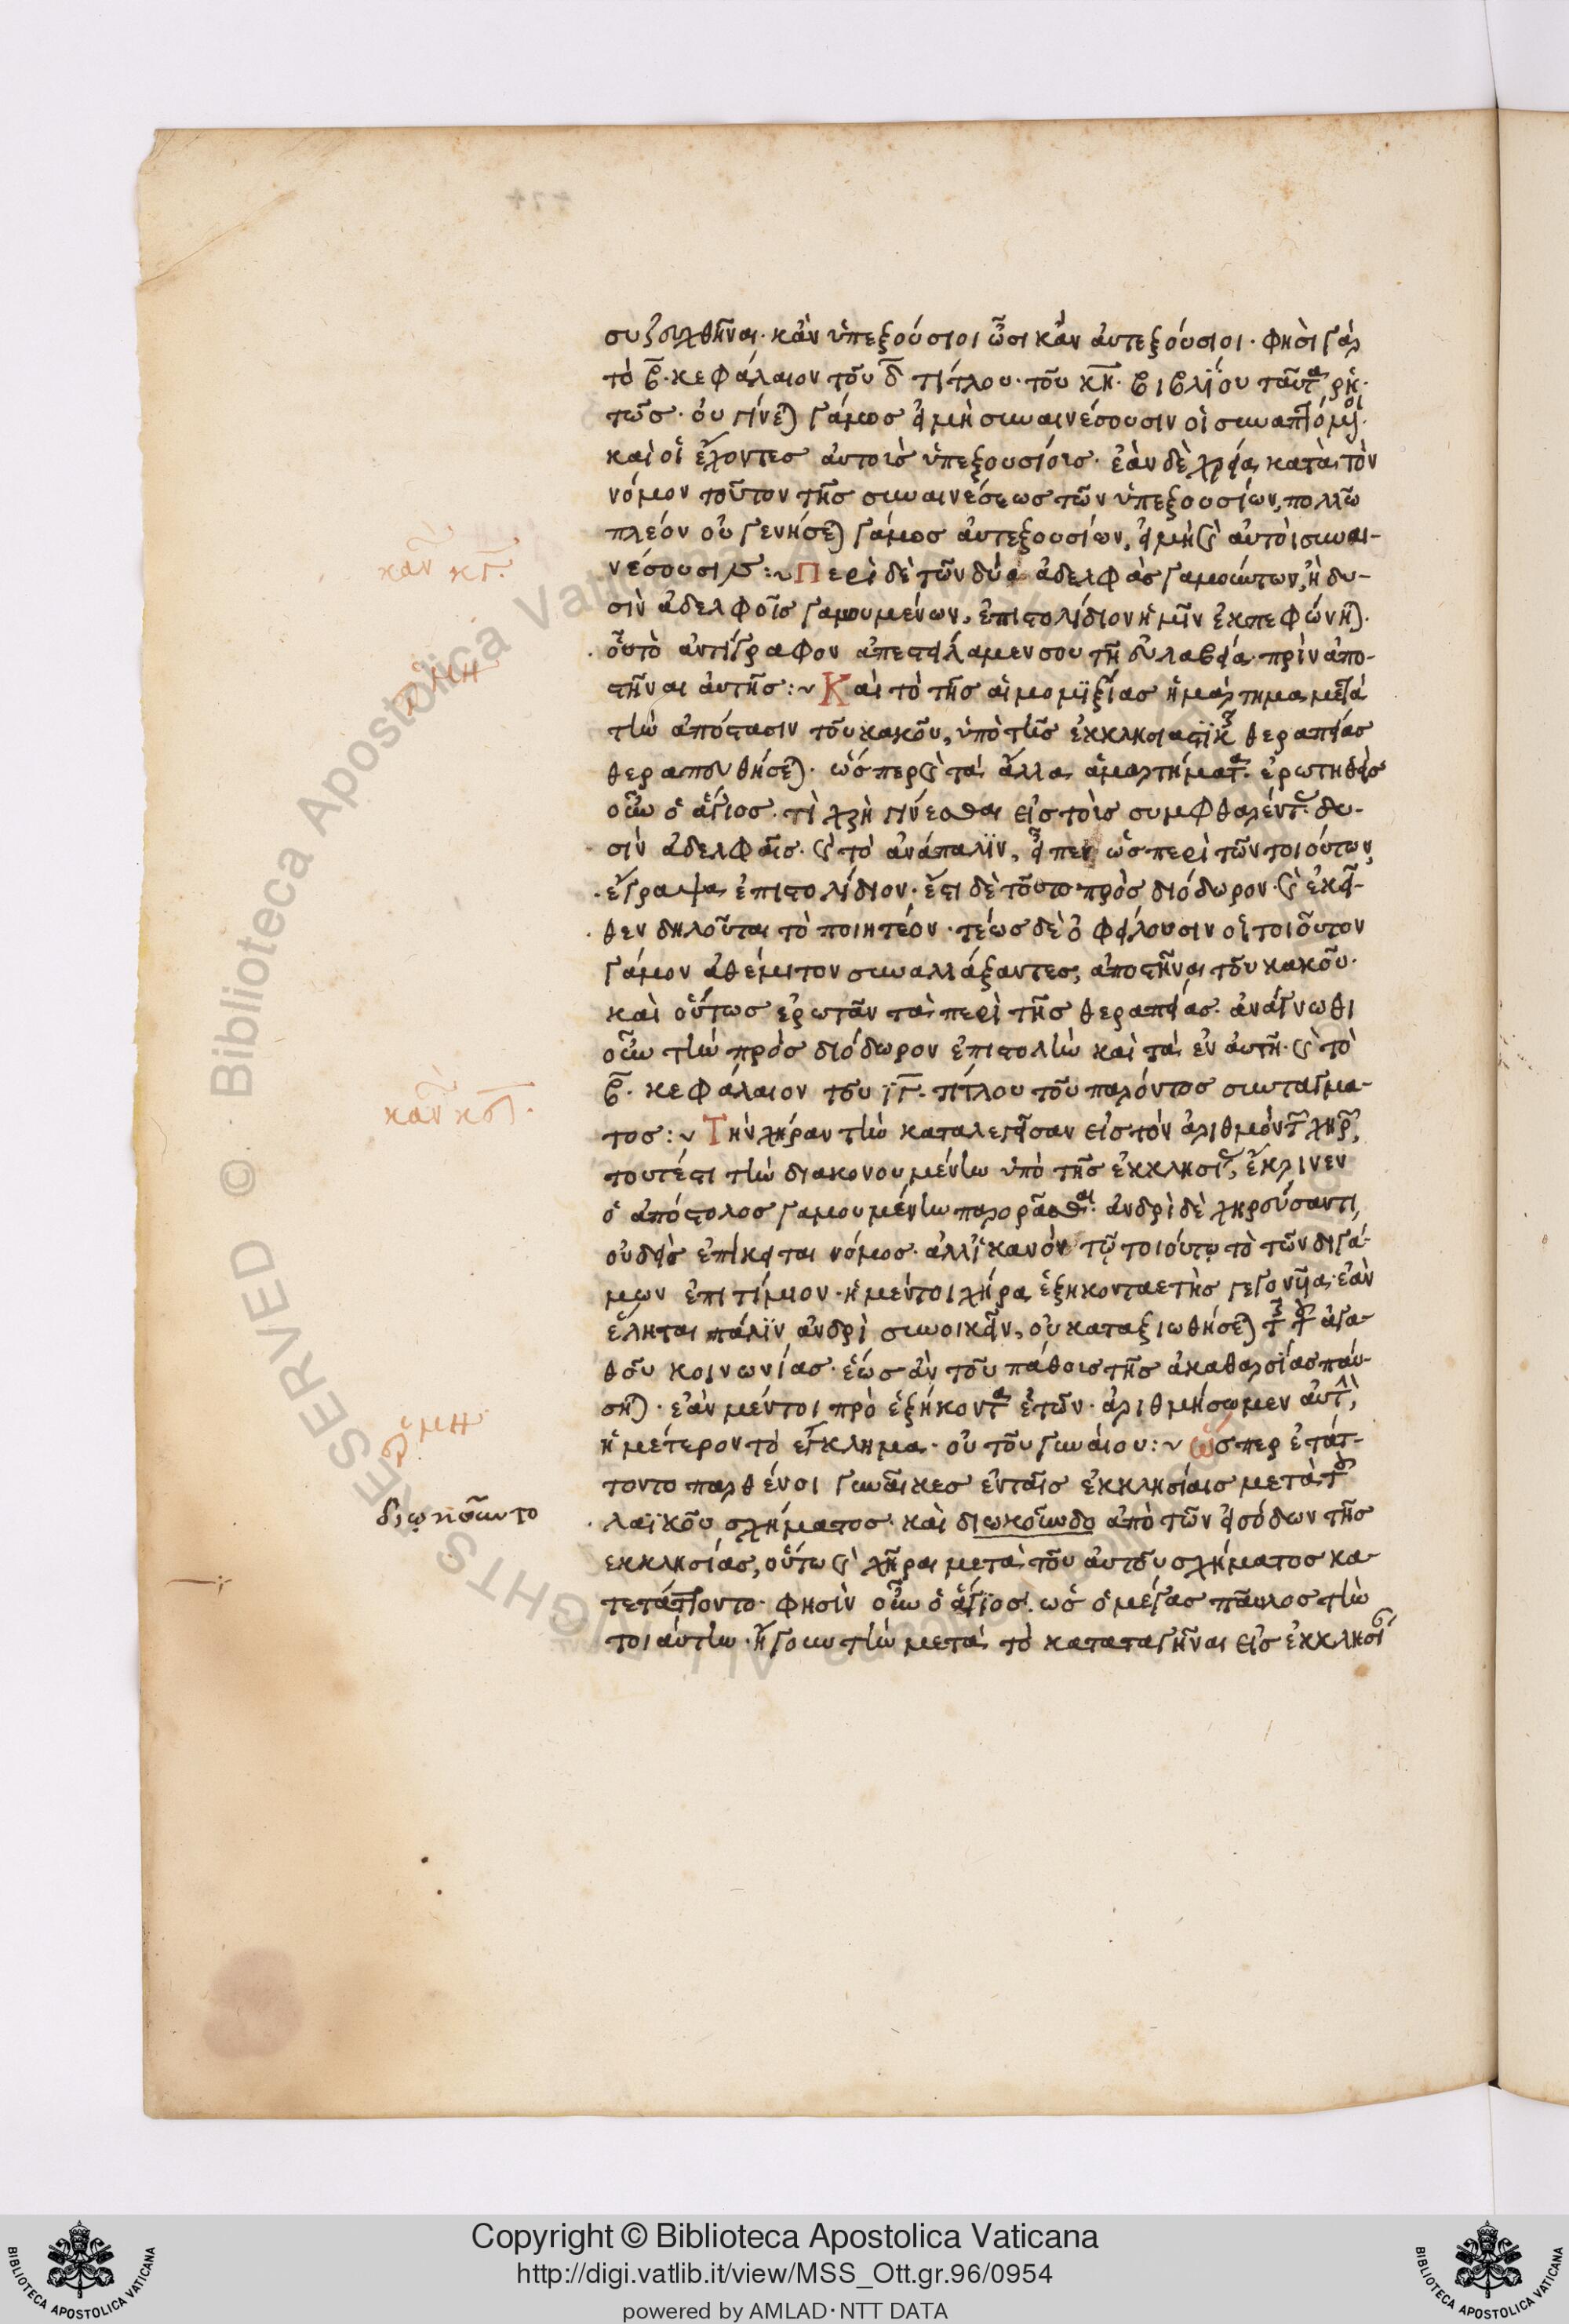 συζευχθῆναι· κἂν ὑπεξούσιοι ὦσι κἂν αὐτεξούσιοι· φησὶ γὰρ
τὸ β̅· κεφάλαιον τοῦ δ̅ τίτλου· τοῦ κ̅η̅· βιβλίου ταῦτα ῥη-
τῶς· οὐ γίνεται γάμος εἰ μὴ συναινέσουσιν οἱ συναπτόμενοι·
καὶ οἱ ἔχοντες αὐτοὺς ὑπεξουσίους· ἐὰν δὲ χρεία κατὰ τὸν
νόμον τοῦτον τῆς συναινέσεως τῶν ὑπεξουσίων, πολλῶ
πλέον οὐ γενήσεται γάμος αὐτεξουσίων, εἰ μὴ καὶ αὐτοὶ συναι-
νέσουσιν:~ Περὶ δὲ τῶν δύο ἀδελφὰς γαμούντων, ἢ δυ-
σὶν ἀδελφοῖς γαμουμένων, ἐπιστολίδιον ἡμῖν ἐκπεφώνηται·
οὗ τὸ ἀντίγραφον ἀπεστείλαμεν σου τῆ εὐλαβεία· πρὶν ἀπο-
στῆναι αὐτῆς:~ Καὶ τὸ τῆς αἱμομιξίας ἡμάρτημα μετὰ
τὴν ἀπόστασιν τοῦ κακοῦ, ὑπὸ τῆς ἐκκλησιαστικῆς θεραπείας
θεραπευθήσεται· ὥσπερ καὶ τὰ ἄλλα ἁμαρτήματα· ἐρωτηθεὶς
οὖν ὁ ἅγιος· τί χρὴ γίνεσθαι εἰς τοὺς συμφθαρέντας δυ-
σὶν ἀδελφαῖς· καὶ τὸ ἀνάπαλιν, εἶπεν ὡς περὶ τῶν τοιούτων
ἔγραψα ἐπιστολίδιον· ἔστι δὲ τοῦτο πρὸς διόδωρον· καὶ ἐκεῖ-
θεν δηλοῦται τὸ ποιητέον· τέως δὲ ὀφείλουσιν οἱ τοιοῦτον
γάμον ἀθέμιτον συναλλάξαντες, ἀποστῆναι τοῦ κακοῦ·
καὶ οὕτως ἐρωτᾶν τὰ περὶ τῆς θεραπείας· ἀνάγνωθι
οὖν τὴν πρὸς διόδωρον ἐπιστολὴν καὶ τὰ ἐν αὐτῆ· καὶ τὸ
β̅· κεφάλαιον τοῦ ι̅γ̅· τίτλου τοῦ παρόντος συντάγμα-
τος:~ Τὴν χήραν τὴν καταλεγεῖσαν εἰς τὸν ἀριθμὸν τῶν χηρῶν,
τουτέστι τὴν διακονουμένην ὑπὸ τῆς ἐκκλησίας, ἔκρινεν
ὁ ἀπόστολος γαμουμένην παρορᾶσθαι· ἀνδρὶ δὲ χηρεύσαντι,
οὐδεὶς ἐπίκειται νόμος· ἀλλ' ἱκανὸν τῷ τοιούτῳ τὸ τῶν διγά-
μων ἐπιτίμιον· ἡ μέντοι χήρα ἑξηκονταετὴς γεγονυῖα· ἐὰν
ἕληται πάλιν ἀνδρὶ συνοικεῖν, οὐ καταξιωθήσεται τῆς τοῦ ἀγα-
θοῦ κοινωνίας· ἕως ἂν τοῦ πάθους τῆς ἀκαθαρσίας παύ-
σηται· ἐὰν μέντοι πρὸ ἑξήκοντα ἐτῶν· ἀριθμήσωμεν αὐτὴν,
ἡμέτερον τὸ ἔγκλημα· οὐ τοῦ γυναίου:~ Ὥσπερ ἐτάτ-
τοντο παρθένοι γυναῖκες ἐν ταῖς ἐκκλησίαις μετὰ τοῦ
λαϊκοῦ σχήματος· καὶ διωκοῦνδο ἀπὸ τῶν εἰσόδων τῆς
ἐκκλησίας, οὕτω καὶ χῆραι μετὰ τοῦ αὐτοῦ σχήματος κα-
τετάττοντο· φησὶν οὖν ὁ ἅγιος· ὡς ὁ μέγας παῦλος τὴν
τοιαύτην· ἤγουν τὴν μετὰ τὸ καταταγῆναι εἰς ἐκκλησίαν
καν κγ̅·
ἑρμη
καν κδ̅·
ἑρμη
διῳκοῦντο
Copyright © Biblioteca Apostolica Vaticana
http://digi.vatlib.it/view/MSS_Ott.gr.96/0954
powered by AMLAD·NTT DATA
BIBLIOTECA APOSTOLICA VATICANA
BIBLIOTECA APOSTOLICA VATICANA
ALL RIGHTS RESERVED © Biblioteca Apostolica Vaticana